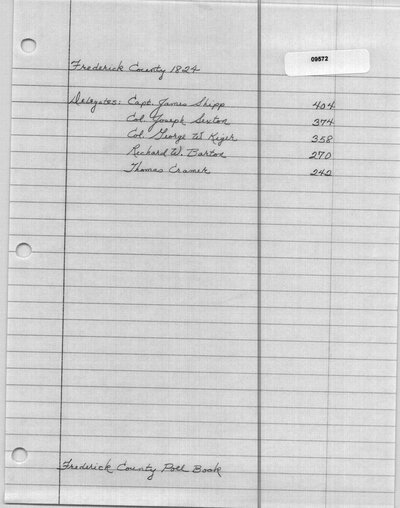 09572
Frederick County 1824
Delegates: Capt. James Shipp 404
Col. Joseph Sexton 374
Col. George W. Kiger 358
Richard W. Barton 270
Thomas Cramer 242
Frederick County Poll Book